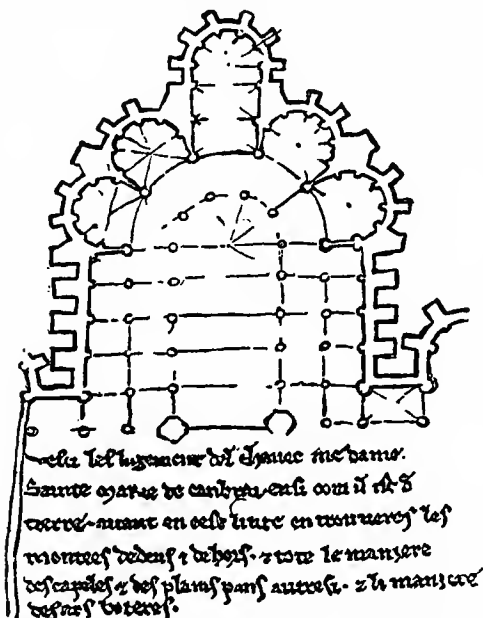 vesci lesligement del chavec me dame.
Sainte marie de canbrai ensi com il ist d
tierre. avant en cest livre en trouveres les
montees dedens ⁊ dehors. ⁊ tote le maniere
des capeles ⁊ des plains pans autresi. ⁊ li maniere
des ars boteres.